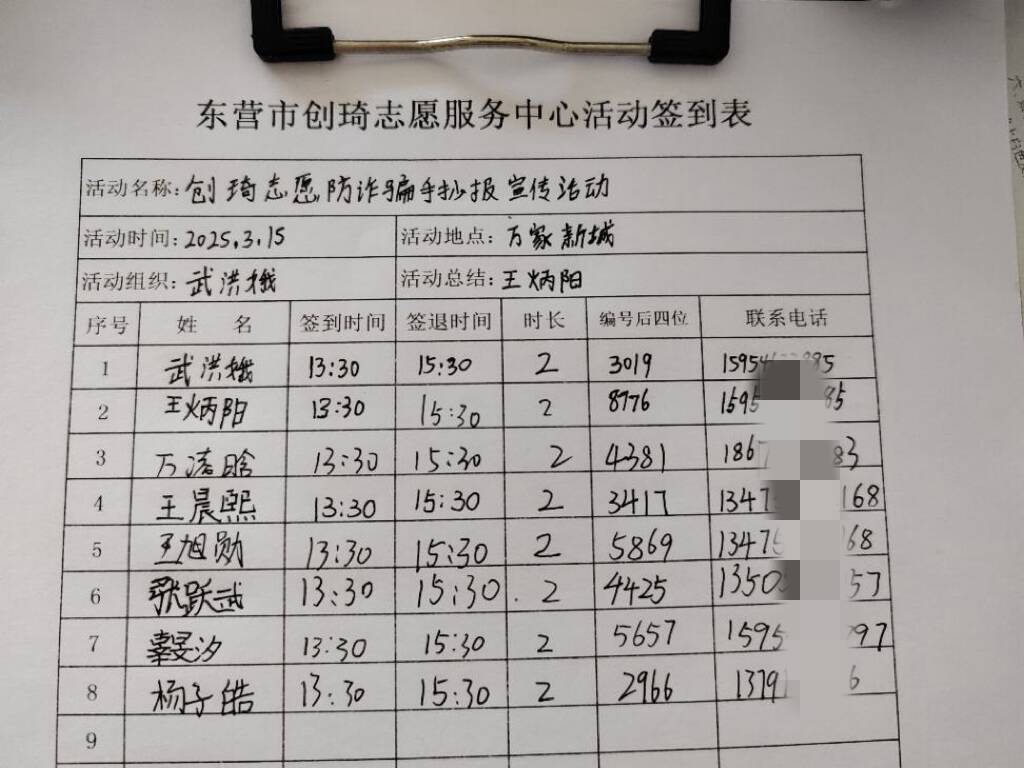 东营市创琦志愿服务中心活动签到表
活动名称:创琦志愿防诈骗手抄报宣传活动
活动时间:2025.3.15 活动地点:万家新城
活动组织:武洪娥 活动总结:王炳阳
序号 姓名 签到时间 签退时间 时长 编号后四位 联系电话
1 武洪娥 13:30 15:30 2 3019 15954 85
2 王炳阳 13:30 15:30 2 8776 1595 85
3 万 晗 13:30 15:30 2 4381 186 83
4 王晨熙 13:30 15:30 2 3417 1347 168
5 王旭勋 13:30 15:30 2 5869 13475 68
6 张跃武 13:30 15:30 2 4425 13505 57
7 汐 13:30 15:30 2 5657 1595 97
8 杨子皓 13:30 15:30 2 2966 1379 6
9